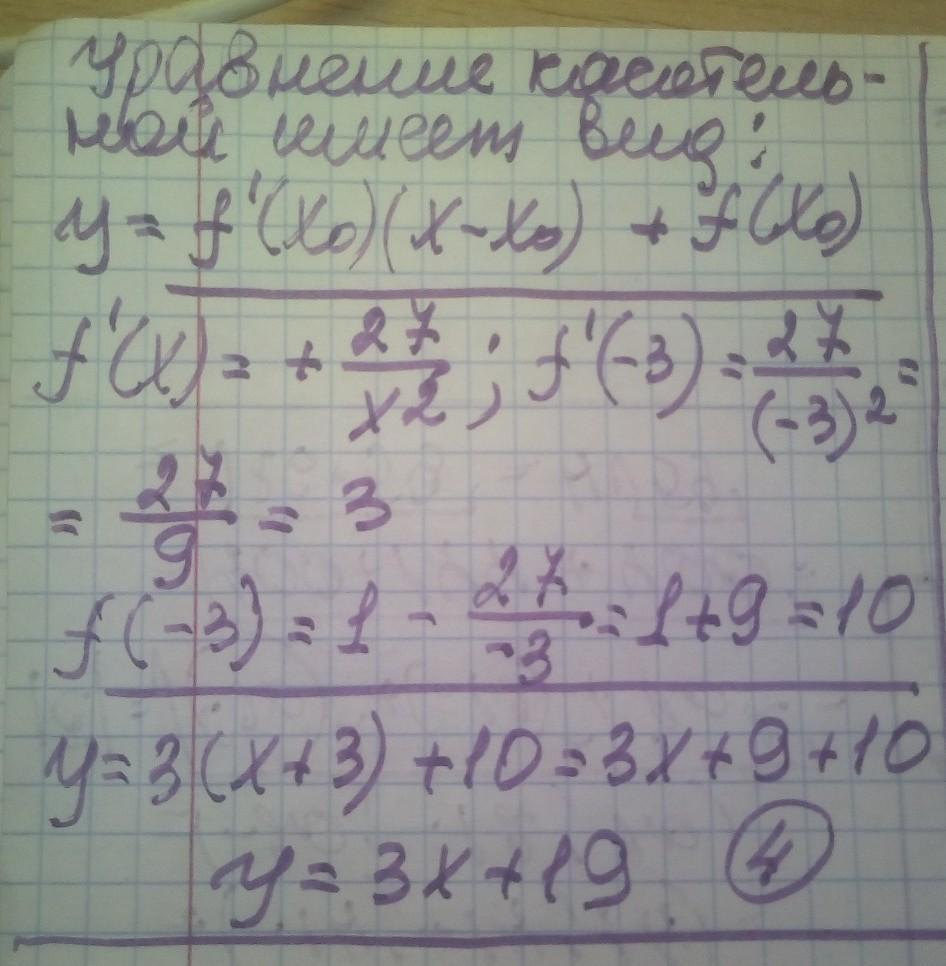 Уравнение касатель-
ной имеет вид:
y = f'(x₀)(x-x₀) + f(x₀)
f'(x) = + 27/x2 ; f'(-3) = 27/(-3)² =
= 27/9 = 3
f(-3) = 1 - 27/-3 = 1+9 = 10
y = 3(x+3) + 10 = 3x+9+10
y = 3x+19 4